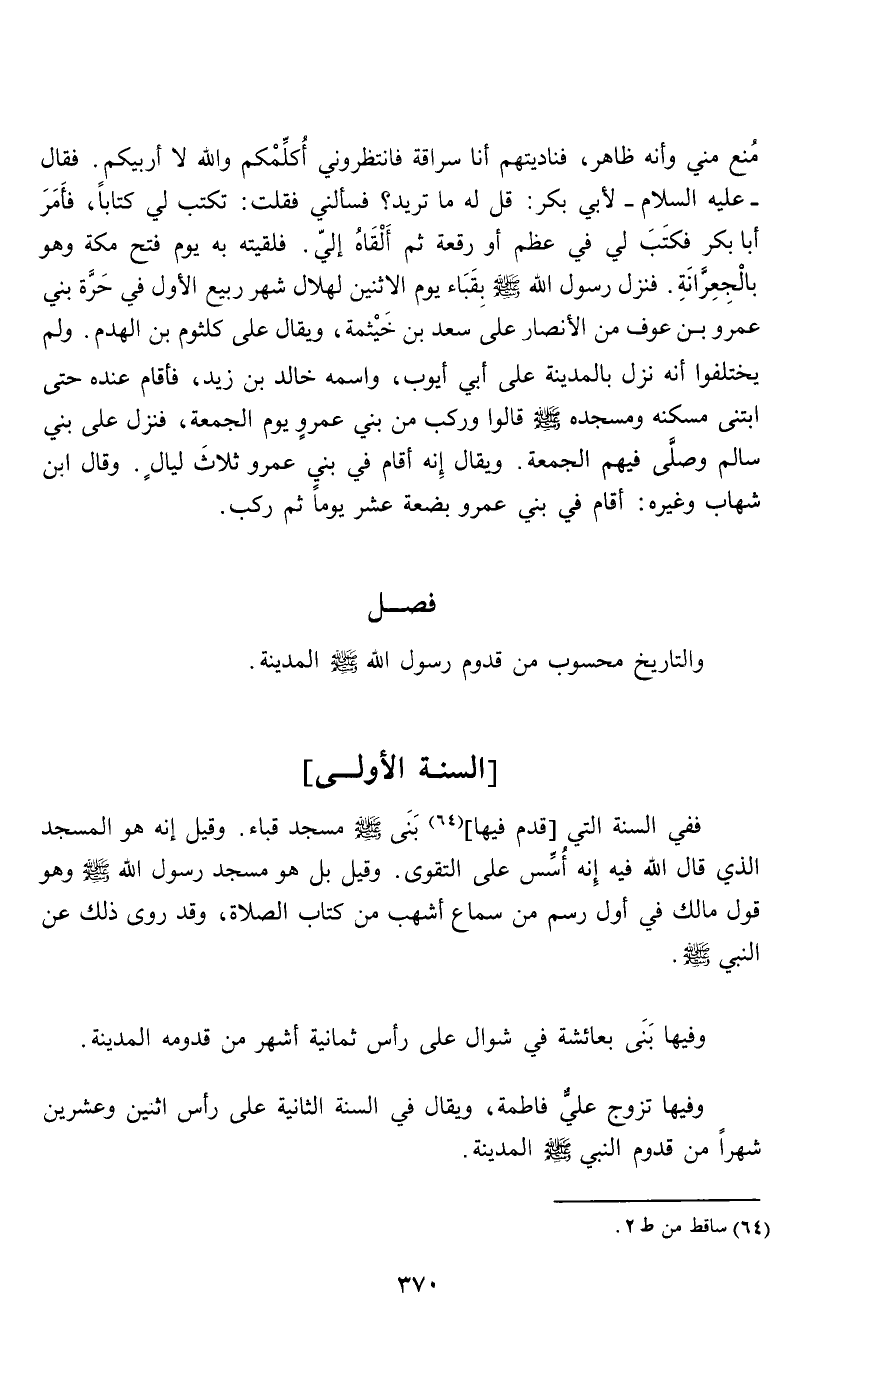 مُنع مني وأنه ظاهر، فناديتهم أنا سراقة فانتظروني أُكلِّمْكم والله لا أربيكم. فقال
ـ عليه السلام ـ لأبي بكر: قل له ما تريد؟ فسألني فقلت: تكتب لي كتاباً، فأَمَرَ
أبا بكر فكتَبَ لي في عظم أو رقعة ثم أَلْقَاهُ إليّ. فلقيته به يوم فتح مكة وهو
بالْجِعِرَّانَةِ. فنزل رسول الله ﷺ بِقَبَاء يوم الاثنين لهلال شهر ربيع الأول في حَرَّة بني
عمرو بـن عوف من الأنصار على سعد بن خَيْثمة، ويقال على كلثوم بن الهدم. ولم
يختلفوا أنه نزل بالمدينة على أبي أيوب، واسمه خالد بن زيد، فأقام عنده حتى
ابتنى مسكنه ومسجده ﷺ قالوا وركب من بني عمروٍ يوم الجمعة، فنزل على بني
سالم وصلَّى فيهم الجمعة. ويقال إنه أقام في بني عمرو ثلاثَ ليالٍ. وقال ابن
شهاب وغيره: أقام في بني عمرو بضعة عشر يوماً ثم ركب.
فصـــل
والتاريخ محسوب من قدوم رسول الله ﷺ المدينة.
[السنـة الأولـــى]
ففي السنة التي [قدم فيها](٦٤) بَنَى ﷺ مسجد قباء. وقيل إنه هو المسجد
الذي قال الله فيه إِنه أُسِّس على التقوى. وقيل بل هو مسجد رسول الله ﷺ وهو
قول مالك في أول رسم من سماع أشهب من كتاب الصلاة، وقد روى ذلك عن
النبي ﷺ.
وفيها بَنَى بعائشة في شوال على رأس ثمانية أشهر من قدومه المدينة.
وفيها تزوج عليٌّ فاطمة، ويقال في السنة الثانية على رأس اثنين وعشرين
شهراً من قدوم النبي ﷺ المدينة.
(٦٤) ساقط من ط ٢.
٣٧٠